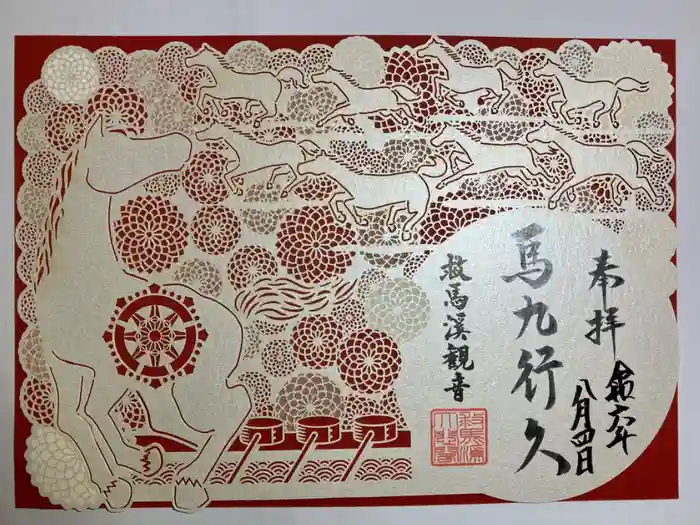 奉拝
令和六年
八月四日
馬九行久
救馬溪観音